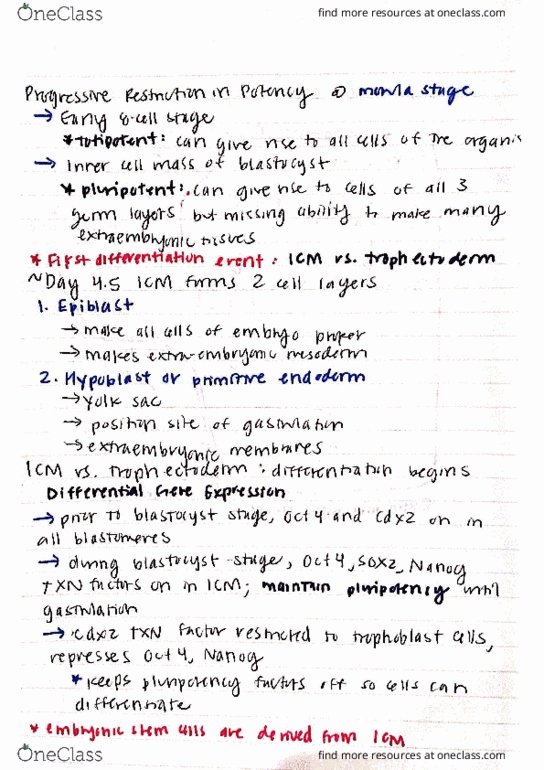 OneClass find more resources at oneclass.com
Progressive Restriction in Potency @ morula stage
→ Early 8-cell stage
* totipotent: can give rise to all cells of the organis
→ Inner cell mass of blastocyst
* pluripotent: can give rise to cells of all 3
germ layers but missing ability to make many
extraembryonic tissues
* First differentiation event: ICM vs. trophectoderm
~Day 4.5 ICM forms 2 cell layers
1. Epiblast
→ make all cells of embryo proper
→ makes extra-embryonic mesoderm
2. Hypoblast or primitive endoderm
→ yolk sac
→ position site of gastrulation
→ extraembryonic membranes
ICM vs. trophectoderm: differentiation begins
Differential Gene Expression
→ prior to blastocyst stage, Oct4 and Cdx2 on in
all blastomeres
→ during blastocyst stage, Oct4, Sox2, Nanog
TXN factors on in ICM; maintain pluripotency until
gastrulation
→ Cdx2 TXN factor restricted to trophoblast cells,
represses Oct4, Nanog
* keeps pluripotency factors off so cells can
differentiate
* embryonic stem cells are derived from ICM
OneClass find more resources at oneclass.com